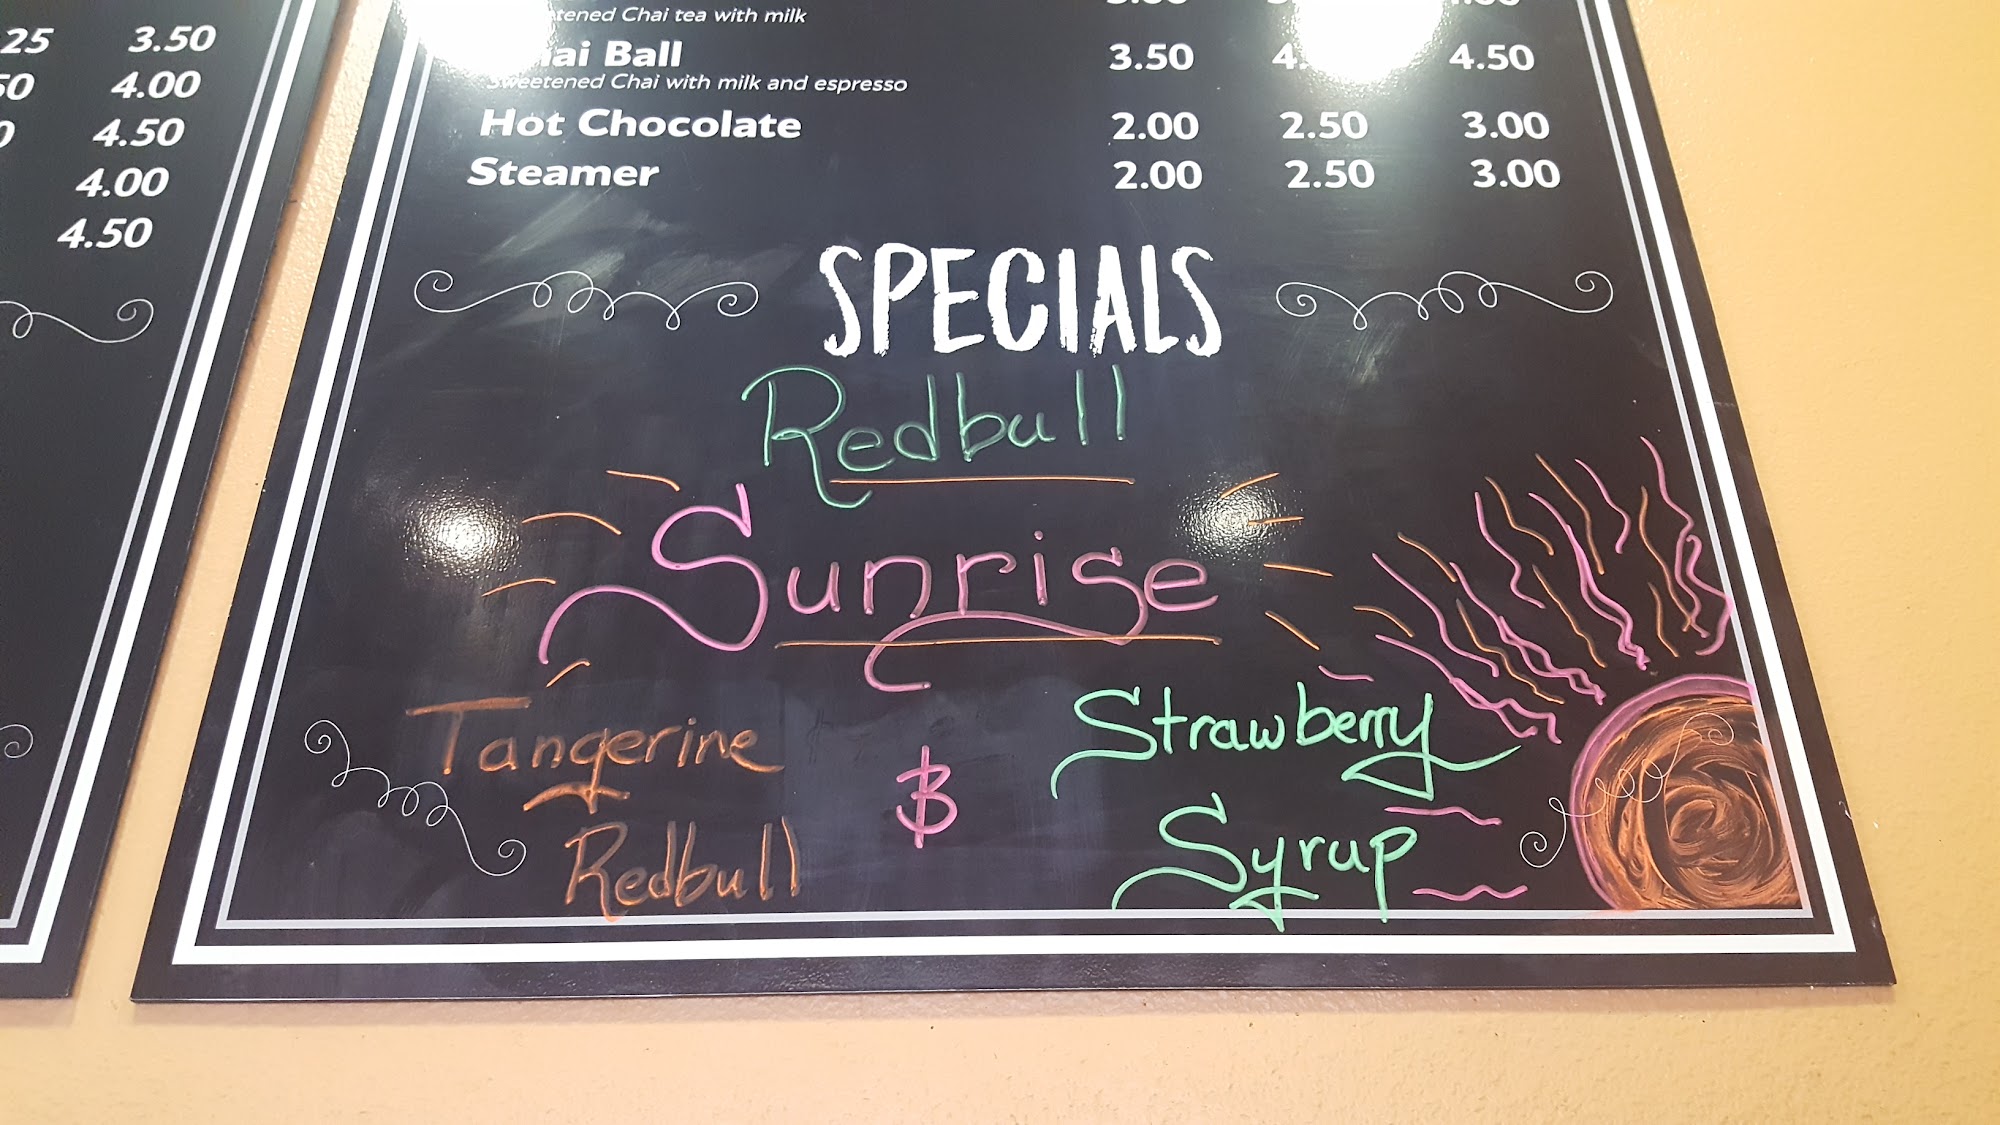 3.50
4.00
4.50
4.00
4.50
Chai tea with milk
Ball
Sweetened Chai with milk and espresso
3.50 4.50
Hot Chocolate 2.00 2.50 3.00
Steamer 2.00 2.50 3.00
SPECIALS
Redbull
Sunrise
Tangerine
Redbull
&
Strawberry
Syrup